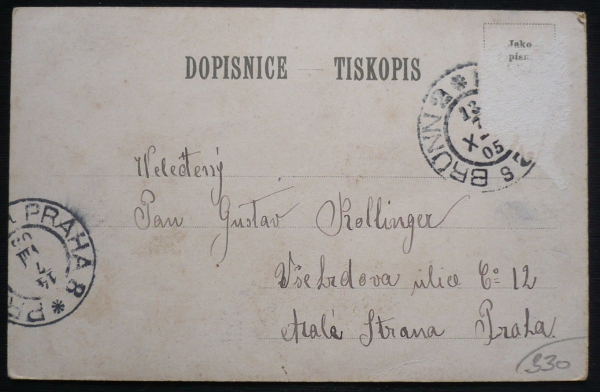 DOPISNICE — TISKOPIS
Jako
BRÜNN 2 *
13
X
05
S
Velectěný
Pan Gustav Kollinger
Všehrdova ulice Č: 12
Malá Strana Praha.
PRAHA 8 *
14
7
VIII
330